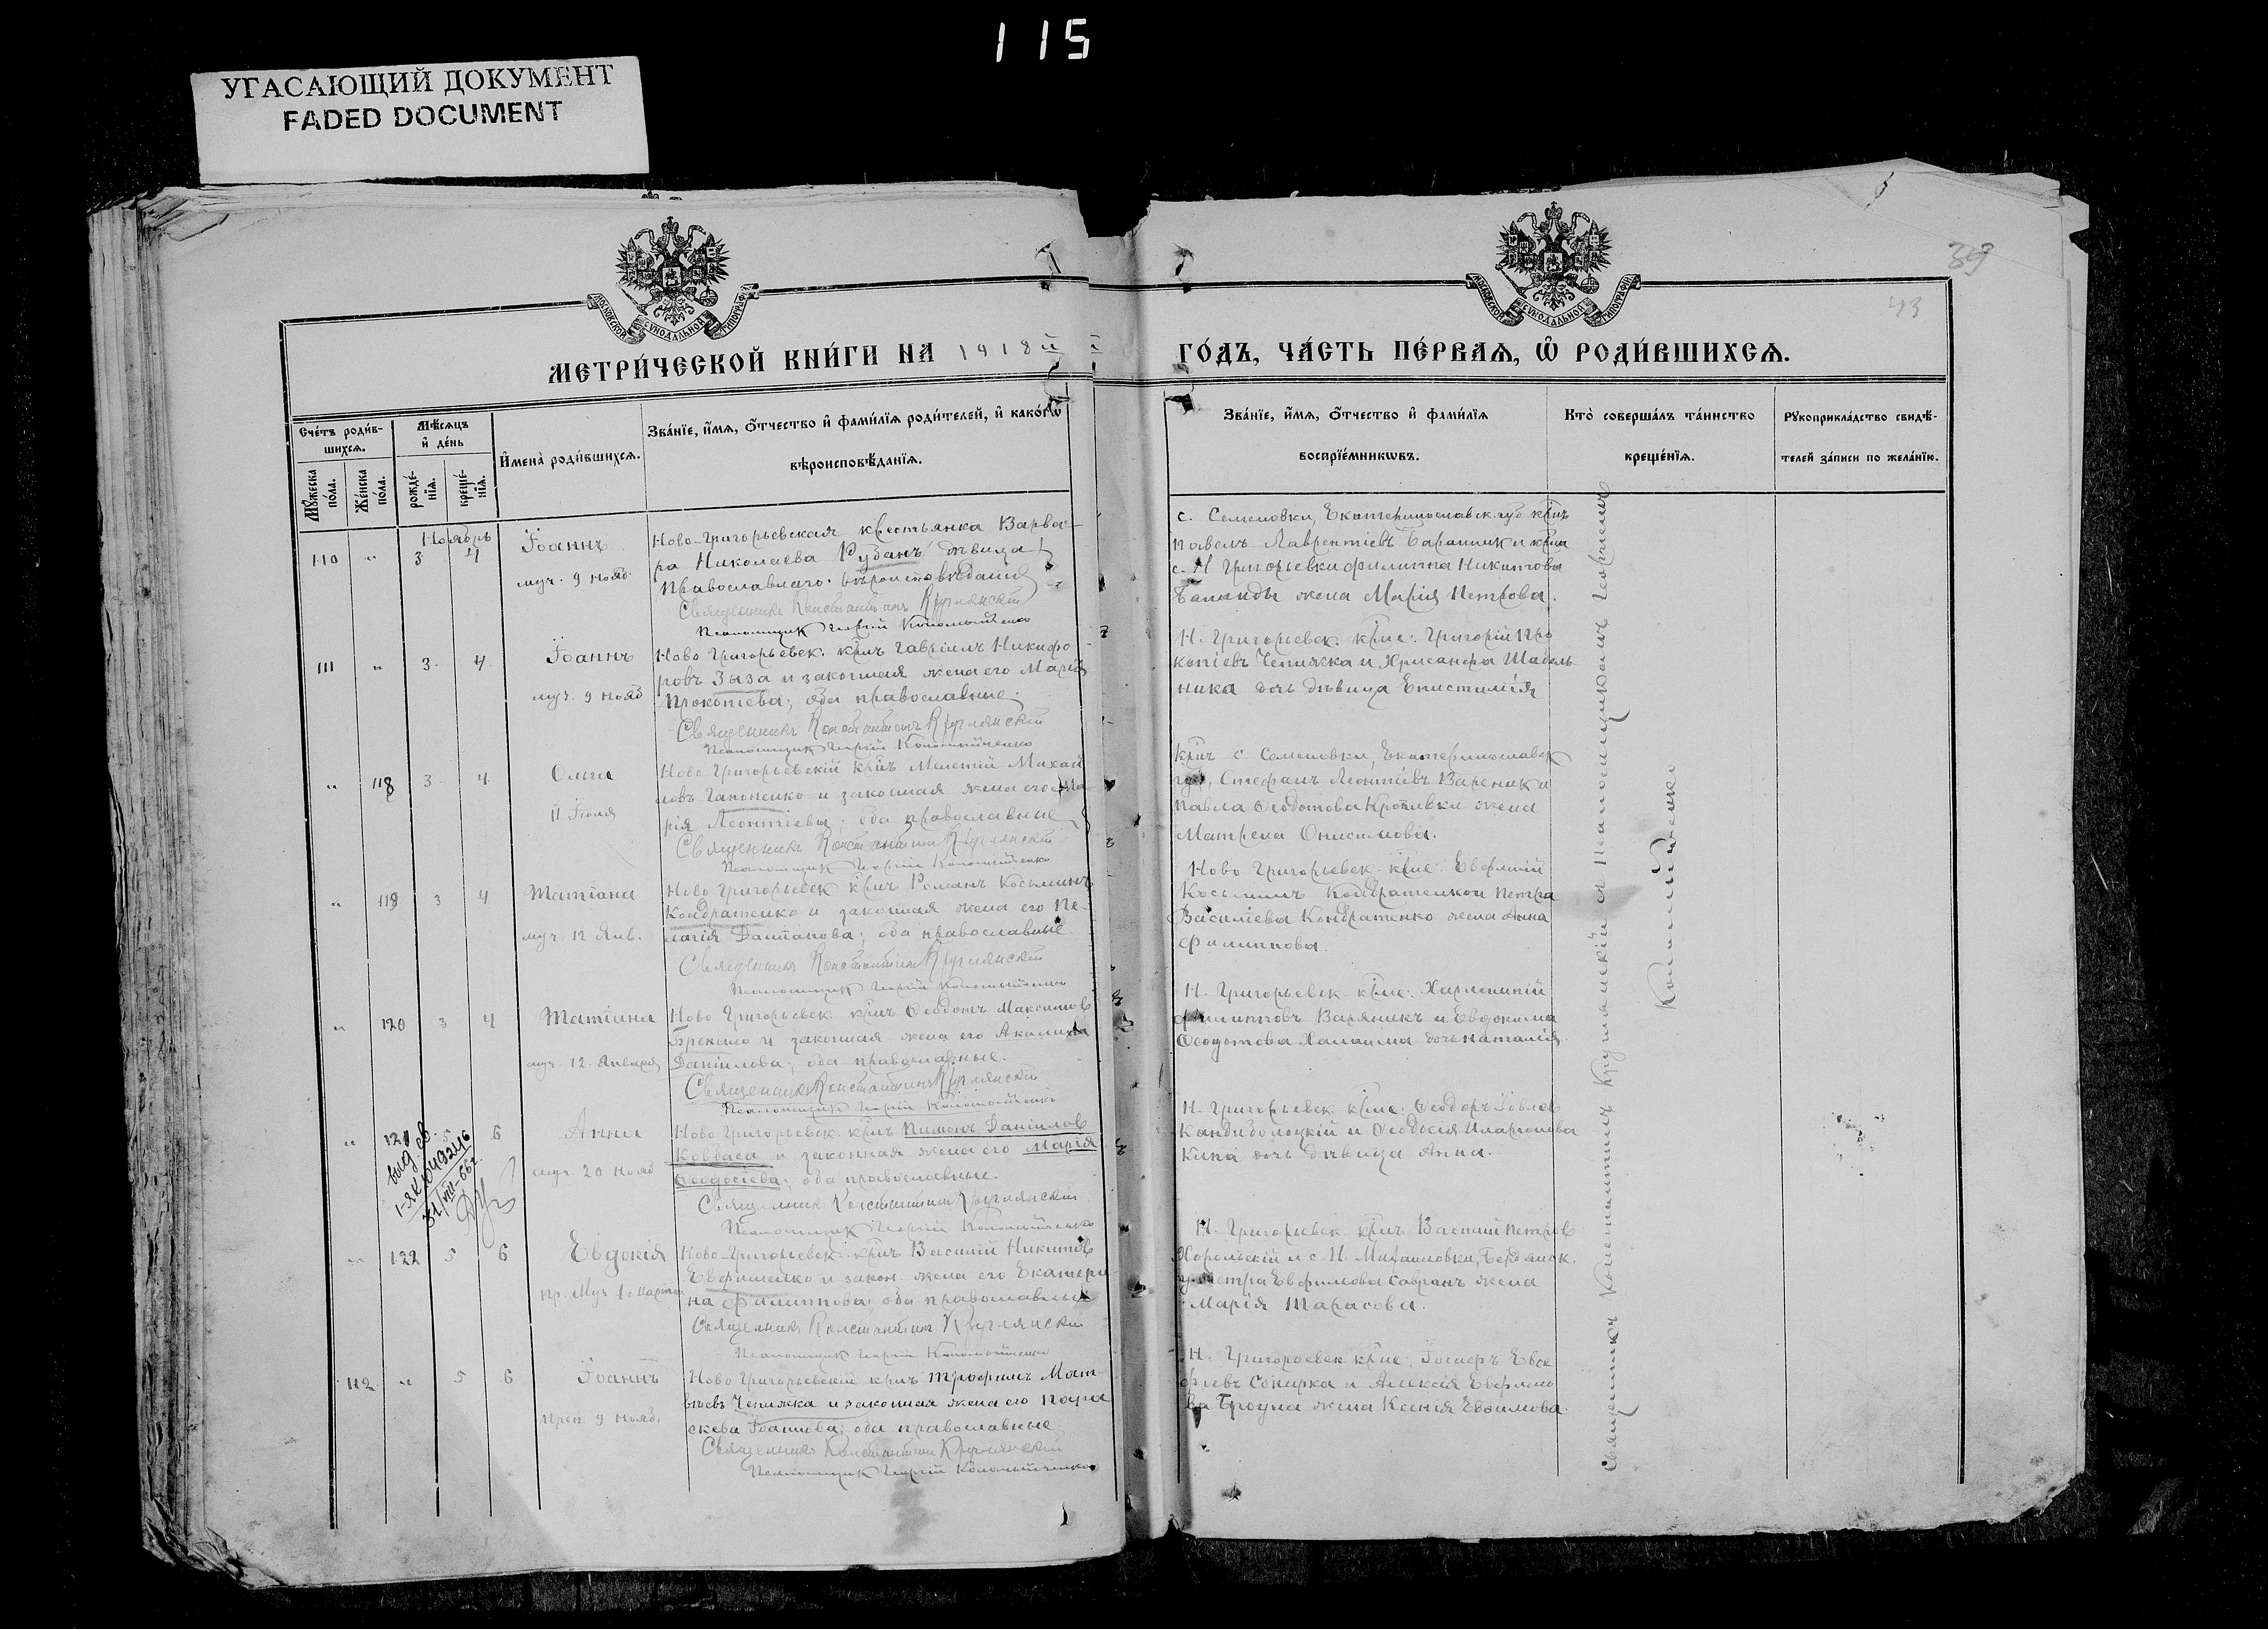 115
УГАСАЮЩИЙ ДОКУМЕНТ
FADED DOCUMENT
39
43
МОСКОВСКОЙ СѴНОДАЛЬНОЙ ТИПОГРАФІИ
МОСКОВСКОЙ СѴНОДАЛЬНОЙ ТИПОГРАФІИ
МЕТРИ́ЧЕСКОЙ КНИ́ГИ НА 1918 й
ГО́ДЪ, ЧА́СТЬ ПЕ́РВАЯ, Ѽ РОДИ́ВШИХСЯ.
Сче́тъ роди́в-
шихся.
Мꙋжеска по́ла.
Же́нска по́ла.
Мѣ́сяцъ
и҆ де́нь
рожде́-
нїя.
креще́-
нїя.
И҆мена̀ роди́вшихся.
Зва́нїе, и҆́мя, ѻ҆́тчество и҆ фами́лїя роди́телей, и҆ како́гѡ
вѣроисповѣ́данїя.
Зва́нїе, и҆́мя, ѻ҆́тчество и҆ фами́лїя
воспрїе́мникѡвъ.
Кто̀ соверша́лъ та́инство
креще́нїя.
Рꙋкоприкла́дство свидѣ́-
телей за́писи по жела́нїю.
Ноябрь
110 „ 3 4 Іоаннъ
муч. 9 нояб.
Ново-Григорьевская крестьянка Варва-
ра Николаева Рубанъ дѣвица
Православнаго вѣроисповѣданія
Священникъ Константинъ Круглянскій
Псаломщик Георгій Коломыйченко
с. Семеновки, Екатеринославск. губ. кр-нъ
Павелъ Лаврентіевъ и кр-на
с. Н Григорьевки Филиппа Никитова
жена Марія Петрова.
111 „ 3 4 Іоаннъ
муч. 9 нояб
Ново Григорьевск. кр-нъ Гавріилъ Никифо
ровъ Зыза и законная жена его Марія
Прокопіева; оба православные.
Священникъ Константинъ Круглянскій
Псаломщик Георгій Коломыйченко
Н. Григорьевск. кр-не: Григорій Про
копіевъ Чепижка и Хрисанфа Шабель
ника дочь дѣвица Епистимія
„ 118 3 4 Ольга
11 Іюля
Ново Григорьевскій кр-нъ Мелетій Михай
ловъ Гапоненко и законная жена его Ма-
рія Леонтіева; оба православные
Священникъ Константинъ Круглянскій
Псаломщик Георгій Коломыйченко
кр-нъ с. Семеновки, Екатеринославск
губ, Стефанъ Леонтіевъ Вареник и
Павла Ѳеодотова Кропивки жена
Матрена Онисимова.
„ 119 3 4 Татіана
муч. 12 Янв.
Ново Григорьевск кр-нъ Романъ Косьминъ
Кондратенко и законная жена его Пе-
лагія; оба православные
Священникъ Константинъ Круглянскій
Псаломщик Георгій Коломыйченко
Ново Григорьевск. кр-не: Евфимій
Косьминъ Кондратенко и Петра
Василіева Кондратенко жена Анна
Филиппова.
„ 120 3 4 Татіана
муч. 12 Января
Ново Григорьевск кр-нъ Ѳеодотъ Максимов
и законная жена его Акилина
Даніилова; оба православные.
Священникъ Константинъ Круглянскій
Псаломщик Георгій Коломыйченко
Н. Григорьевск кр-не: Харлампій
Филипповъ Варяникъ и Евдокима
Ѳеодотова дочь Наталія.
„ 121 5 6 Анна
муч. 20 нояб
выд. св.
1-ЯК 049246
31/VIII-56г.
Ново Григорьевск. кр-нъ Пименъ Даніилов
Ковбаса и законная жена его Марія
Ѳеодосіева; оба православные.
Священник Константинъ Круглянскій
Псаломщик Георгій Коломыйченко
Н. Григорьевск кр-не: Ѳеодоръ Іовлев
и Ѳеодосія Иларіонова
дочь дѣвица Анна.
„ 122 5 6 Евдокія
пр. муч 1 марта
Ново-Григорьевск. кр-нъ Василій Никитов
Евфименко и закон. жена его Екатери
на Филиппова; оба православные
Священникъ Константинъ Круглянскій
Псаломщик Георгій Коломыйченко
Н. Григорьевск кр-нъ Василій Петров
Хорольскій и с. Н. Михайловки, Бердянск.
у. Петра Евфимова Савранъ жена
Марія Тарасова.
112 „ 5 6 Іоаннъ
преп. 9 нояб.
Ново Григорьевскій кр-нъ Трофимъ Мат-
вѣевъ Чепижка и законная жена его Пара
скева Іоаннова; оба православные
Священникъ Константинъ Круглянскій
Псаломщик Георгій Коломыйченко
Н. Григорьевск кр-не: Іосифъ Евсе
фіевъ Сокирка и Алексія Евфимо
ва жена Ксенія
Священникъ Константинъ Круглянскій и Псаломщикъ Георгій
Коломыйченко